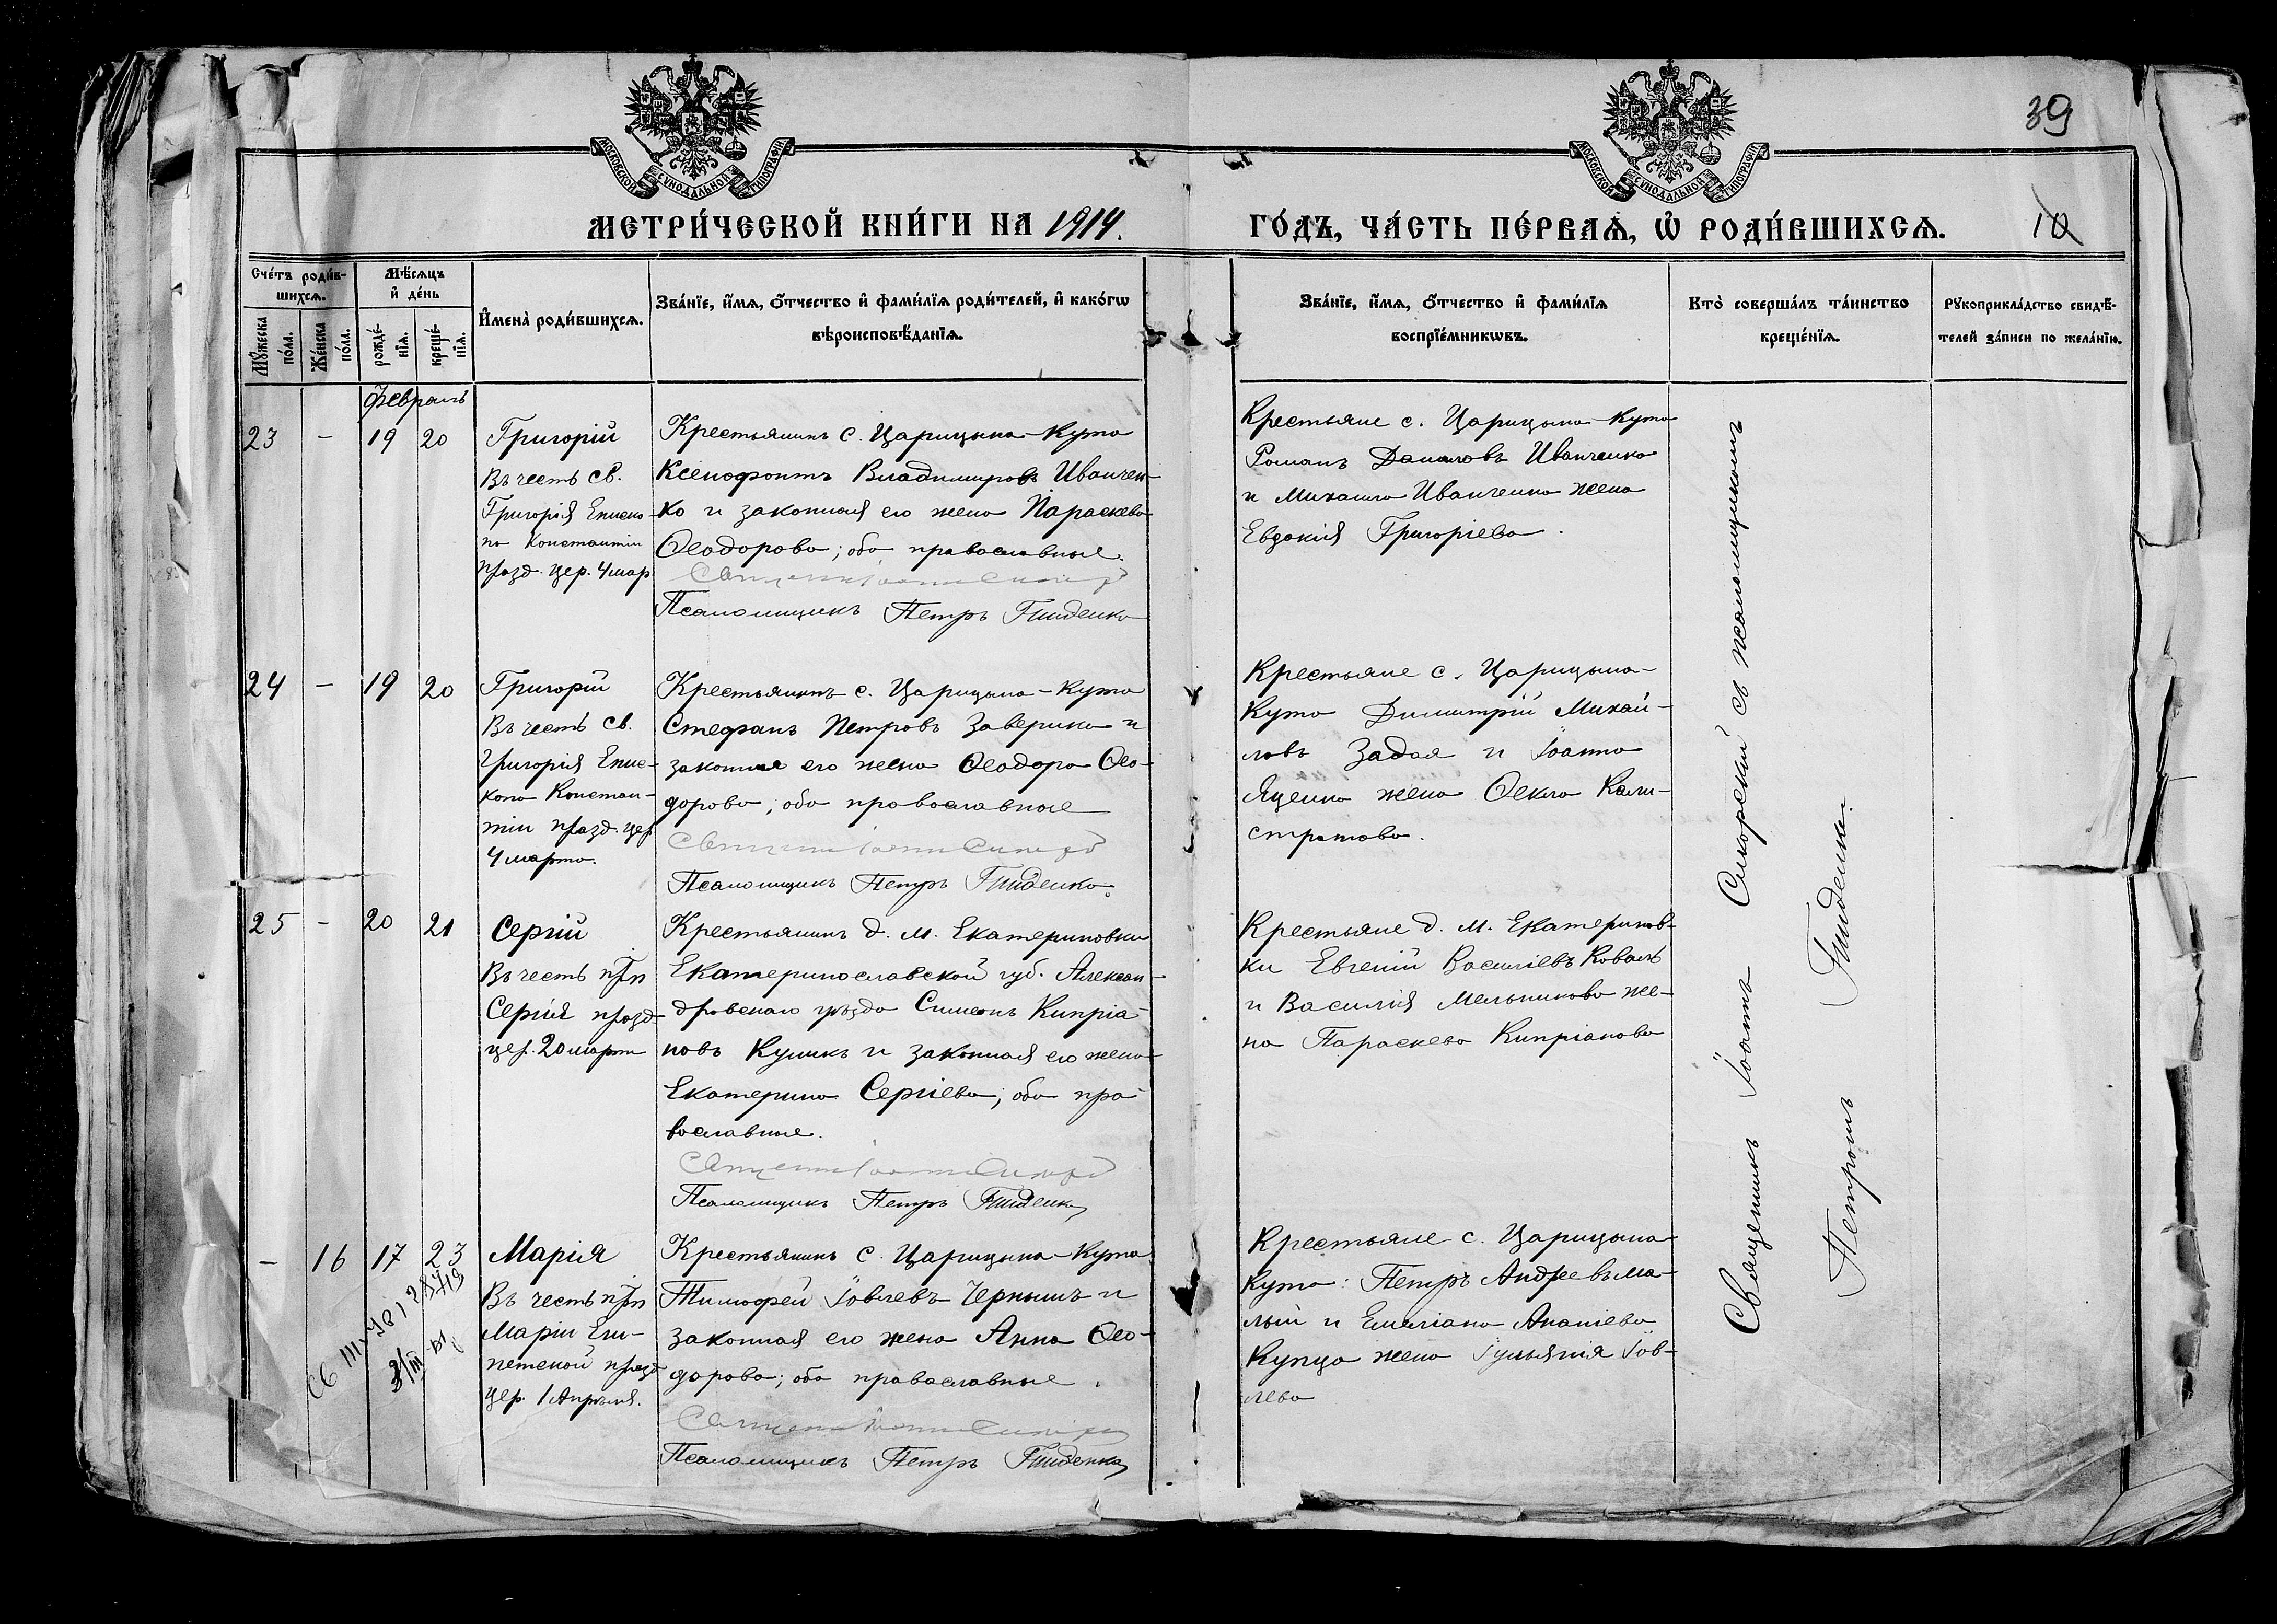 39
МОСКОВСКОЙ СѴНОДАЛЬНОЙ ТИПОГРАФІИ
МОСКОВСКОЙ СѴНОДАЛЬНОЙ ТИПОГРАФІИ
МЕТРИ́ЧЕСКОЙ КНИ́ГИ НА 1914.
ГО́ДЪ, ЧА́СТЬ ПЕ́РВАѦ, Ѡ҆ РОДИ́ВШИХСѦ.
10
Сче́тъ роди́в-
шихсѧ.
Мѣ́сѧцъ
и҆ де́нь
Мꙋ́жеска
по́ла.
Же́нска
по́ла.
рожде́-
нїѧ.
креще́-
нїѧ.
И҆мена̀ роди́вшихсѧ.
Зва́нїе, и҆́мѧ, ѻ҆́тчество и҆ фами́лїѧ роди́телей, и҆ како́гѡ
вѣроисповѣ́данїѧ.
Зва́нїе, и҆́мѧ, ѻ҆́тчество и҆ фами́лїѧ
воспрїе́мникѡвъ.
Кто̀ соверша́лъ та́инство
креще́нїѧ.
Рꙋкоприкла́дство свидѣ́-
телей за́писи по жела́нїю.
Февраль
23 - 19 20
Григорій
Въ честь св.
Григорія Еписко-
па Константіи
празд. цер. 4 мар.
Крестьянинъ с. Царицына-Кута
Ксенофонтъ Владимировъ Иванчен-
ко и законная его жена Параскева
Ѳеодорова; оба православные.
Псаломщикъ Петръ Гниденко
Крестьяне с. Царицына-Кута
Романъ Даниловъ Иванченко
и Михаила Иванченко жена
Евдокія Григоріева.
24 - 19 20
Григорій
Въ честь св.
Григорія Епис-
копа Констан-
тіи празд. цер.
4 марта.
Крестьянинъ с. Царицына-Кута
Стефанъ Петровъ Заверико и
законная его жена Ѳеодора Ѳео-
дорова; оба православные
Псаломщикъ Петръ Гниденко.
Крестьяне с. Царицына-
Кута Димитрій Михай-
ловъ Задоя и Іоанна
Яценка жена Ѳекла Кали-
стратова.
25 - 20 21
Сергій
Въ честь прп
Сергія празд.
цер. 20 марта
Крестьянинъ д. М. Екатериновки
Екатеринославской губ. Алексан-
дровскаго уѣзда Симеонъ Кипріа-
новъ Куликъ и законная его жена
Екатерина Сергіева; оба пра-
вославные.
Псаломщикъ Петръ Гниденко
Крестьяне д. М. Екатеринов-
ки Евгеній Васильевъ Коваль
и Василія Мельникова же-
на Параскева Кипріанова
- 16 17 23
Марія
Въ честь прп
Маріи Еги-
петской празд
цер. 1 Апрѣля.
Крестьянинъ с. Царицына-Кута
Тимофей Іовлевъ Чернышъ и
законная его жена Анна Ѳео-
дорова; оба православные.
Псаломщикъ Петръ Гниденко
Крестьяне с. Царицына-
Кута: Петръ Андреевъ Ма-
лый и Емиліана Ананіева
Купца жена Іуліанія Іов-
лева
Священникъ Іоаннъ Сикорскій съ псаломщикомъ
Петромъ Гниденко.